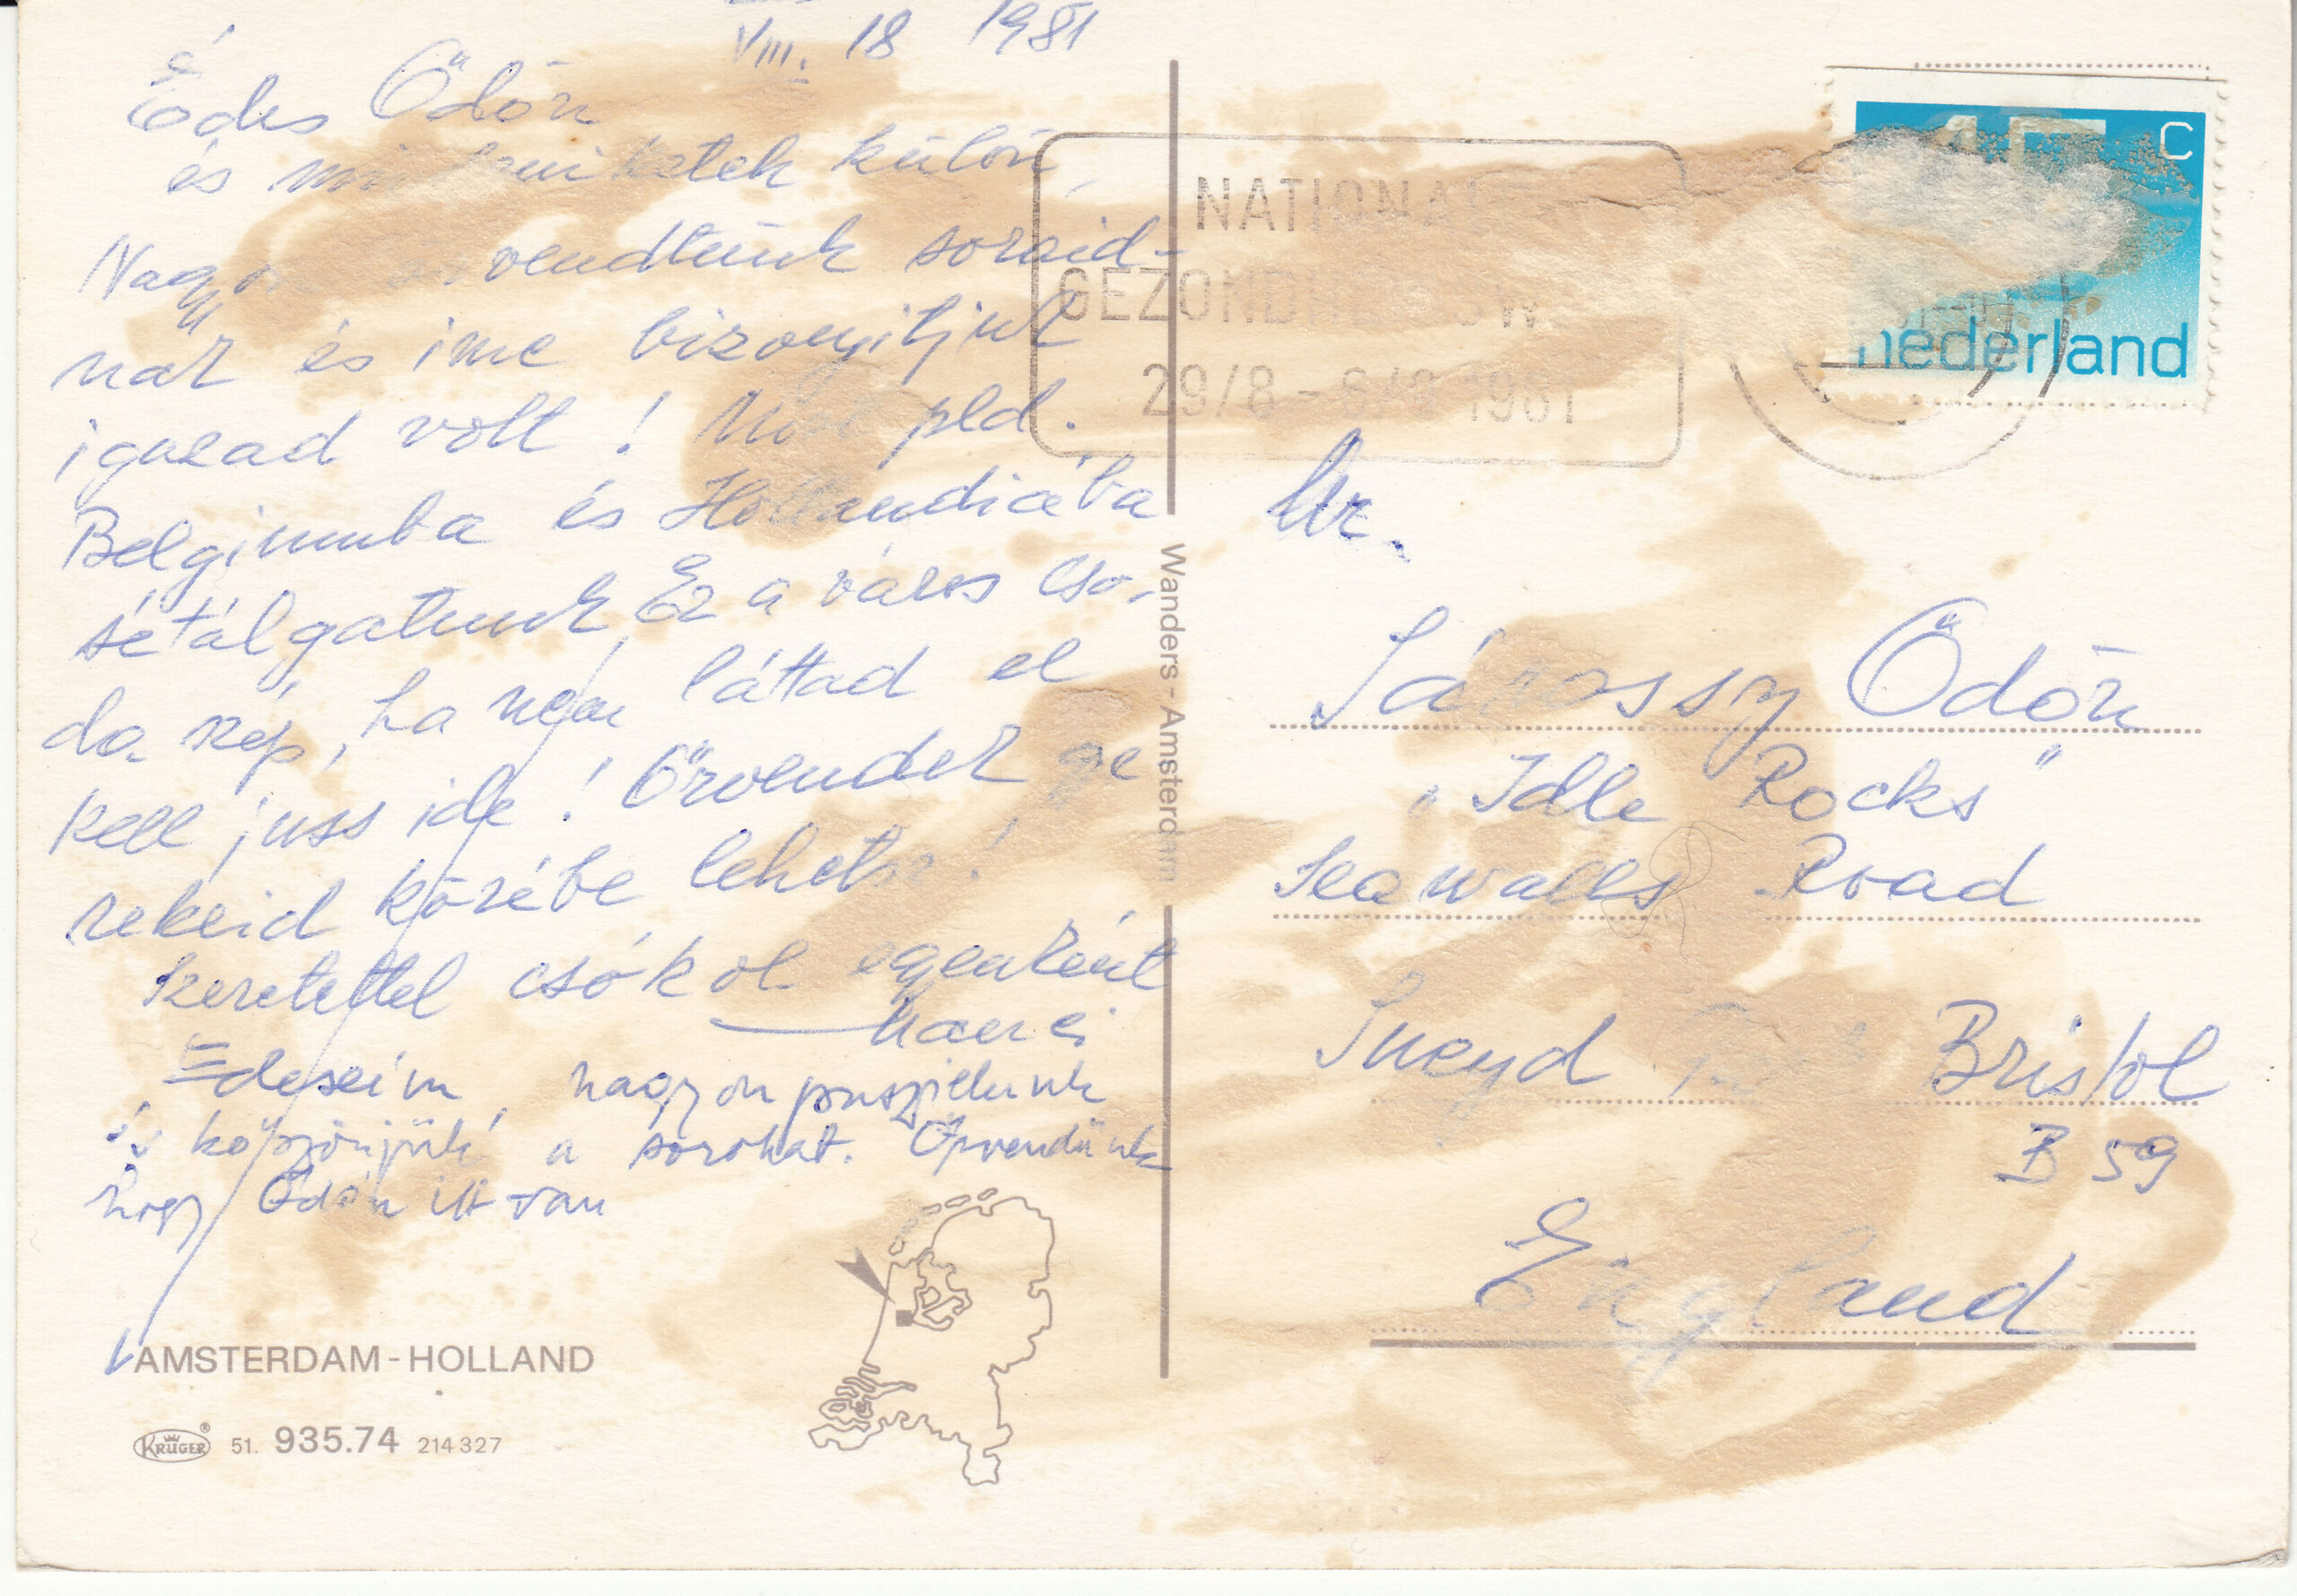 VIII. 18 1981
Édes Ödön
és külön,
Nagyon örvendtünk soraid-
nak és ime bizonyitjuk
igazad volt ! Most pld.
Belgiumba és Hollandiába
sétálgatunk Ez a város cso-
da szép, ha nem láttad el
kell juss ide ! Örvendek gye
rekeid közébe lehetsz !
Szeretettel csókol egyenként
Édeseim, nagyon puszilunk
és köszönjük a sorokat. Örvendünk
hogy Ödön itt van
AMSTERDAM-HOLLAND
KRÜGER 51. 935.74 214327
Wanders-Amsterdam
NATIONALE
GEZOND
29/8 - 1981
C
nederland
Mr.
Sárossy Ödön
"Idle Rocks"
Seawalls Road
Sneyd Bristol
B S9
England